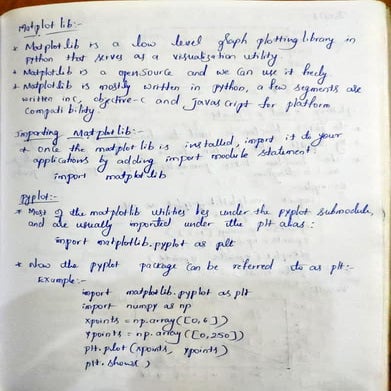 Matplot lib:-
* Matplotlib is a low level graph plotting library in
python that serves as a visualization utility.
* Matplotlib is a open source and we can use it freely
* Matplotlib is mostly written in python, a few segments are
written in c, objective-c and javascript for platform
compatibility.
Importing Matplotlib:-
* Once the matplotlib is installed, import it to your
applications by adding import module statement.
import matplotlib
Pyplot:-
* Most of the matplotlib utilities lies under the pyplot submodule,
and are usually imported under the plt alias:
import matplotlib.pyplot as plt
* Now the pyplot package can be referred to as plt:-
Example:-
import matplotlib.pyplot as plt
import numpy as np
xpoints = np.array([0,6])
ypoints = np.array([0,250])
plt.plot(xpoints, ypoints)
plt.show()